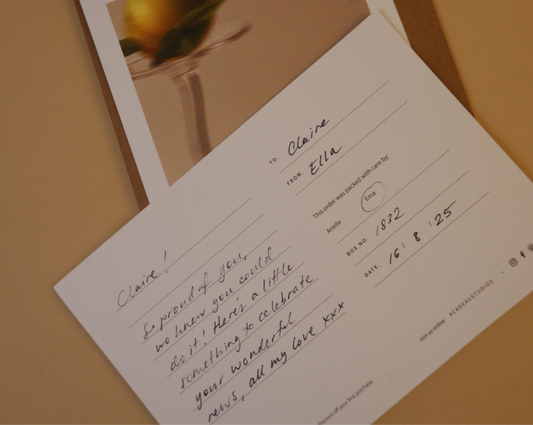 TO. Claire
FROM. Ella
This order was packed with care by:
Arielle Ema
BOX NO. 1832
DATE. 16 / 8 / 25
Claire!
So proud of you,
we knew you could
do it! Here's a little
something to celebrate
your wonderful
news, all my love xxx
Join us online #CADEAUSTUDIOS
discount off your first purchase